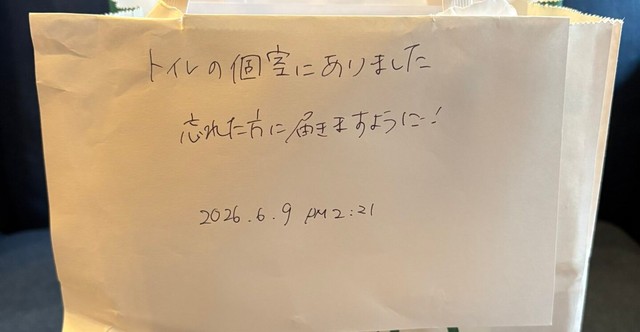 トイレの個室にありました
忘れた方に届きますように!
2026.6.9 PM2:21